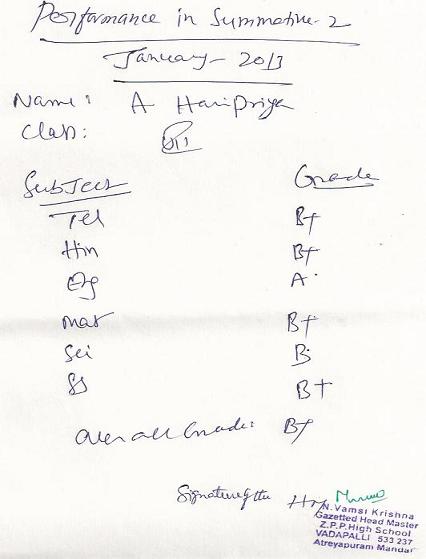 Performance in Summative-2
January-2013
Name: A Haripriya
Class:
Subject Grade
Tel B+
Hin B+
Eng A
mat B+
Sci B
SS B+
Overall Grade: B+
Signature of the HM
N.Vamsi Krishna
Gazetted Head Master
Z.P.P.High School
VADAPALLI 533 237
Atreyapuram Mandal